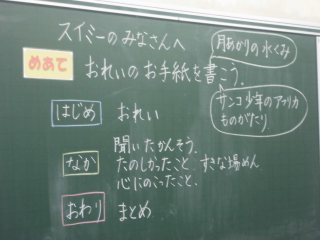 スイミーのみなさんへ
月あかりの水くみ
めあて おれいのお手紙を書こう。
サンコン少年のアフリカ
ものがたり
はじめ おれい
聞いたかんそう。
なか たのしかったこと すきな場めん
心にのこったこと。
おわり まとめ